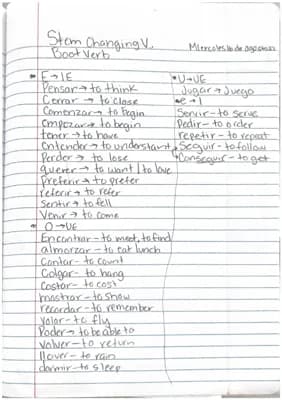 Stem Changing V.
Boot Verb
Miercoles 10 de agosto
E → IE
Pensar → to think
Cerrar → to close
Comenzar → to begin
empezar → to begin
tener → to have
entender → to understant
Perder → to lose
querer → to want | to love
Preferir → to prefer
referir → to refer
Sentir → to fell
Venir → to come
O → UE
Encontrar - to meet, to find
almorzar - to eat lunch
Contar - to count
Colgar - to hang
Costar - to cost
mostrar - to show
recordar - to remember
Volar - to fly
Poder - to be able to
volver - to return
llover - to rain
dormir - to sleep
U → UE
Jugar → Juego
e → i
Servir - to serve
Pedir - to order
repetir - to repeat
Seguir - to follow
Conseguir - to get